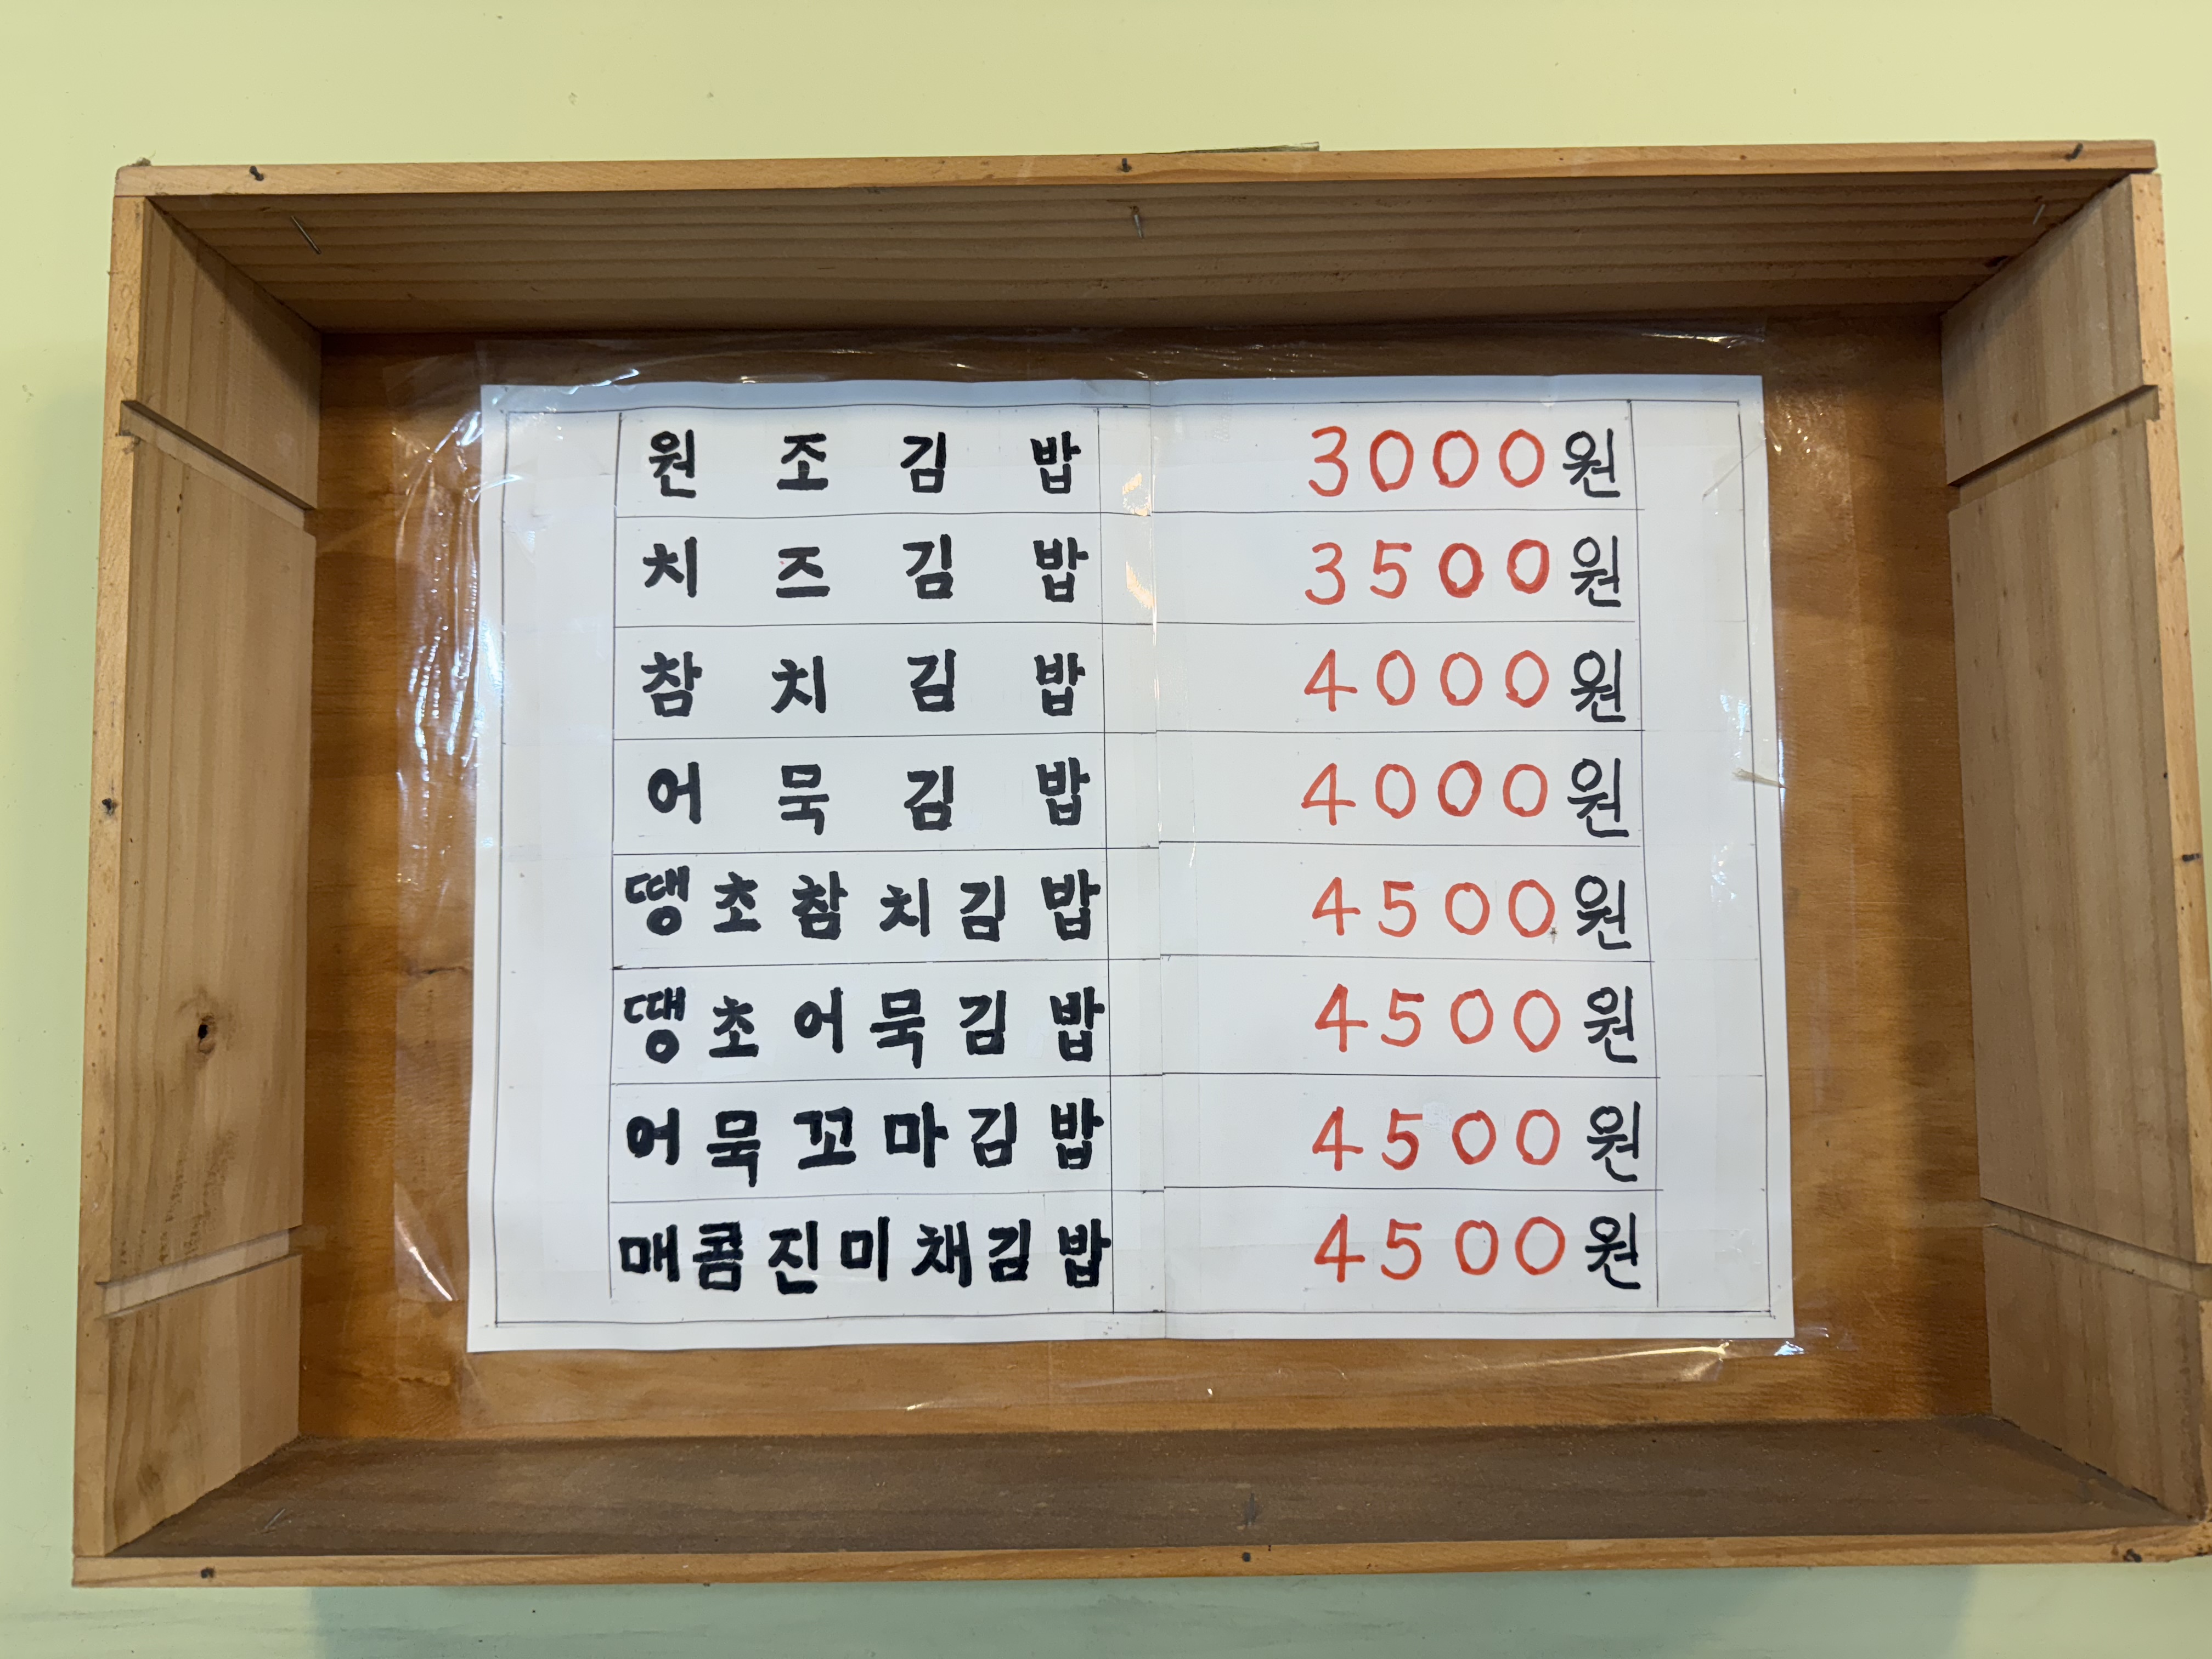 원조김밥 3000원
치즈김밥 3500원
참치김밥 4000원
어묵김밥 4000원
땡초참치김밥 4500원
땡초어묵김밥 4500원
어묵꼬마김밥 4500원
매콤진미채김밥 4500원